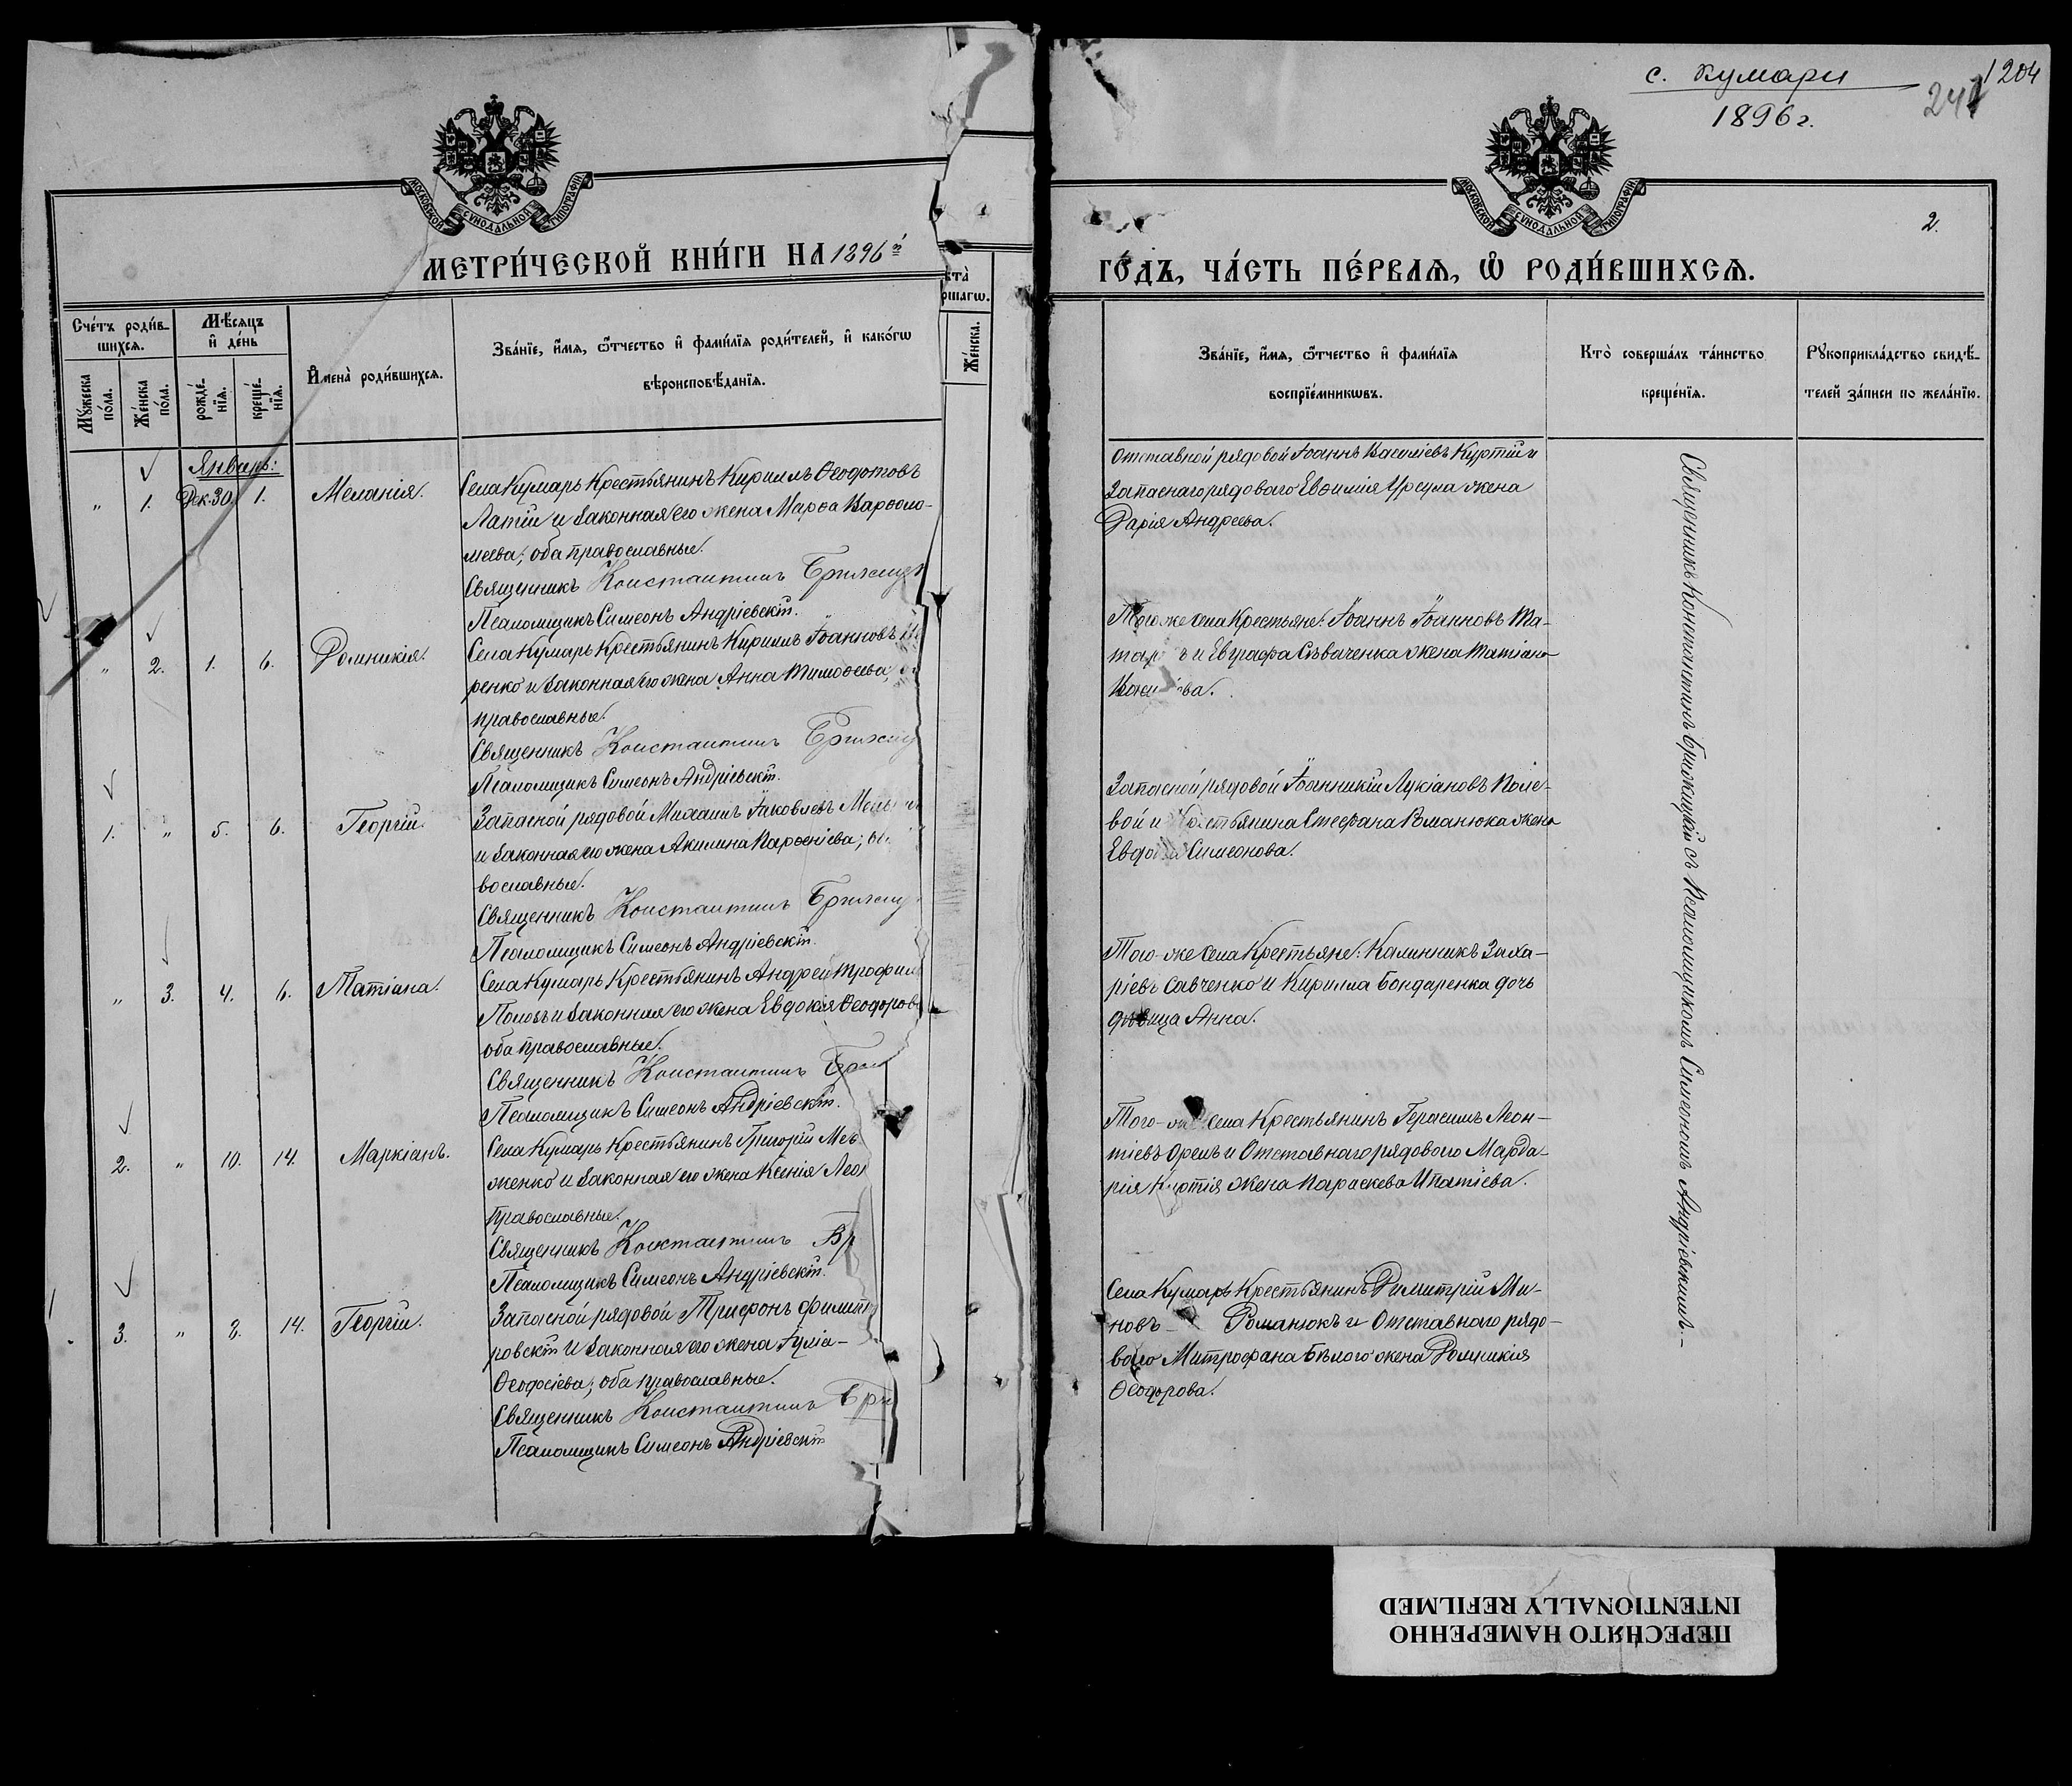 с. Кумари
1896 г.
1204
241
МОСКОВСКОЙ СѴНОДАЛЬНОЙ ТИПОГРАФІИ
МОСКОВСКОЙ СѴНОДАЛЬНОЙ ТИПОГРАФІИ
2.
МЕТРИ́ЧЕСКОЙ КНИ́ГИ НА 1896й
ГО́ДЪ, ЧА́СТЬ ПЕ́РВАѦ, Ѡ҆ РОДИ́ВШИХСѦ.
Сче́тъ роди́в-
шихсѧ.
Мѣ́сѧцъ
и҆ де́нь
Мꙋ́жеска
по́ла.
Же́нска
по́ла.
рожде́-
нїѧ.
креще́-
нїѧ.
И҆мена̀ роди́вшихсѧ.
Зва́нїе, и҆́мѧ, ѻ҆́тчество и҆ фами́лїѧ роди́телей, и҆ како́гѡ
вѣроисповѣ́данїѧ.
кта̀
ршагѡ.
Же́нска.
Зва́нїе, и҆́мѧ, ѻ҆́тчество и҆ фами́лїѧ
воспрїе́мникѡвъ.
Кто̀ соверша́лъ та́инство
креще́нїѧ.
Рꙋкоприкла́дство свидѣ́-
телей за́писи по жела́нїю.
Январь:
" 1. Дек. 30. 1. Меланія.
Села Кумарь Крестьянинъ Кириллъ Ѳеодотовъ
Латій и законная его жена Марѳа Варѳоло-
меева; оба православные.
Священникъ Константинъ
Псаломщикъ Симеонъ Андріевскій.
Отставной рядовой Іоаннъ Василіевъ Куртій и
Запаснаго рядоваго Евѳимія Урсула жена
Дарія Андреева.
" 2. 1. 6. Домникія.
Села Кумарь Крестьянинъ Кириллъ Іоанновъ
ренко и законная его жена Анна Тимоѳеева;
православные.
Священникъ Константинъ
Псаломщикъ Симеонъ Андріевскій.
Того же села Крестьяне: Іоаннъ Іоанновъ Та-
и Евграфа Съваченка жена Татіана
1. " 5. 6. Георгій.
Запасной рядовой Михаилъ Іаковлевъ
и законная его жена Акилина Парѳеніева;
вославные.
Священникъ Константинъ
Псаломщикъ Симеонъ Андріевскій.
Запасной рядовой Іоанникій Лукіановъ Поле-
вой и Крестьянина Стефана Романюка жена
Симеонова.
" 3. 4. 6. Татіана.
Села Кумарь Крестьянинъ Андрей
Поповъ и законная его жена Евдокія
оба православные.
Священникъ Константинъ
Псаломщикъ Симеонъ Андріевскій.
Того-же села Крестьяне: Калинникъ Заха-
ріевъ Савченко и Кирилла Бондаренка дочь
дѣвица Анна.
2. " 10. 14. Маркіанъ.
Села Кумарь Крестьянинъ Григорій
женко и законная его жена Ксенія
православные.
Священникъ Константинъ
Псаломщикъ Симеонъ Андріевскій.
Того-же села Крестьянинъ Герасимъ Леон-
тіевъ Орелъ и Отставнаго рядоваго Марда-
рія Куртія жена Параскева Ипатіева.
3. " 8. 14. Георгій.
Запасной рядовой Трифонъ
ровскій и законная его жена Іулія-
Ѳеодосіева; оба православные.
Священникъ Константинъ
Псаломщикъ Симеонъ Андріевскій
Села Кумарь Крестьянинъ Димитрій Ми-
новъ - Романюкъ и Отставного рядо-
вого Митрофана Бѣлого жена Домникія
Ѳеодорова.
Священникъ Константинъ Брижицкій съ Псаломщикомъ Симеономъ Андріевскимъ.-
ПЕРЕСНЯТО НАМЕРЕННО
INTENTIONALLY REFILMED